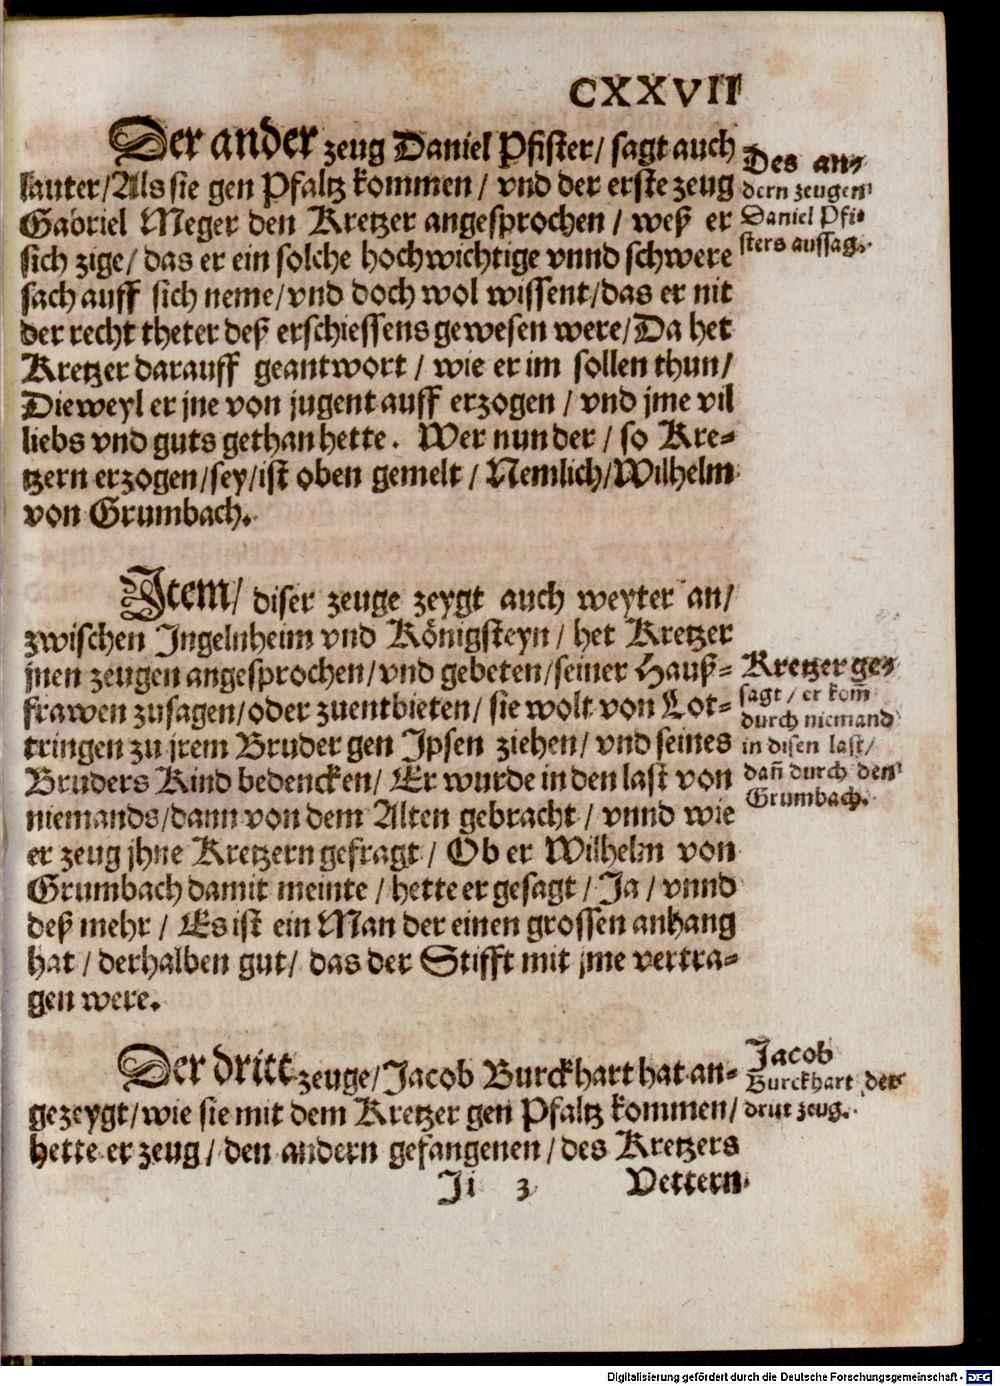 CXXVII
Der ander zeug Daniel Pfister/ sagt auch
lauter/Als sie gen Pfaltz kommen / vnd der erste zeug
Gabriel Meger den Kretzer angesprochen / weß er
sich zige/ das er ein solche hochwichtige vnnd schwere
sach auff sich neme/vnd doch wol wissent/das er nit
der recht theter deß erschiessens gewesen were/Da het
Kretzer darauff geantwort / wie er im sollen thun/
Dieweyl er jne von jugent auff erzogen / vnd jme vil
liebs vnd guts gethan hette. Wer nun der / so Kre-
tzern erzogen/sey/ist oben gemelt / Nemlich/Wilhelm
von Grumbach.
Des an-
dern zeugen
Daniel Pfi-
sters aussag.
Item/ diser zeuge zeygt auch weyter an/
zwischen Ingelnheim vnd Königsteyn / het Kretzer
jnen zeugen angesprochen/vnd gebeten/seiner Hauß-
frawen zusagen/oder zuentbieten/ sie wolt von Lot-
tringen zu jrem Bruder gen Ipsen ziehen/ vnd seines
Bruders Kind bedencken/ Er wurde in den last von
niemands/dann von dem Alten gebracht / vnnd wie
er zeug jhne Kretzern gefragt / Ob er Wilhelm von
Grumbach damit meinte / hette er gesagt / Ja / vnnd
deß mehr / Es ist ein Man der einen grossen anhang
hat / derhalben gut/ das der Stifft mit jme vertra-
gen were.
Kretzer ge-
sagt / er kom̃
durch niemand
in disen last/
dañ durch den
Grumbach.
Der dritt zeuge/Jacob Burckhart hat an-
gezeygt/wie sie mit dem Kretzer gen Pfaltz kommen/
hette er zeug/ den andern gefangenen / des Kretzers
Jacob
Burckhart der
drit zeug.
Ii 3 Vettern
Digitalisierung gefördert durch die Deutsche Forschungsgemeinschaft - DFG